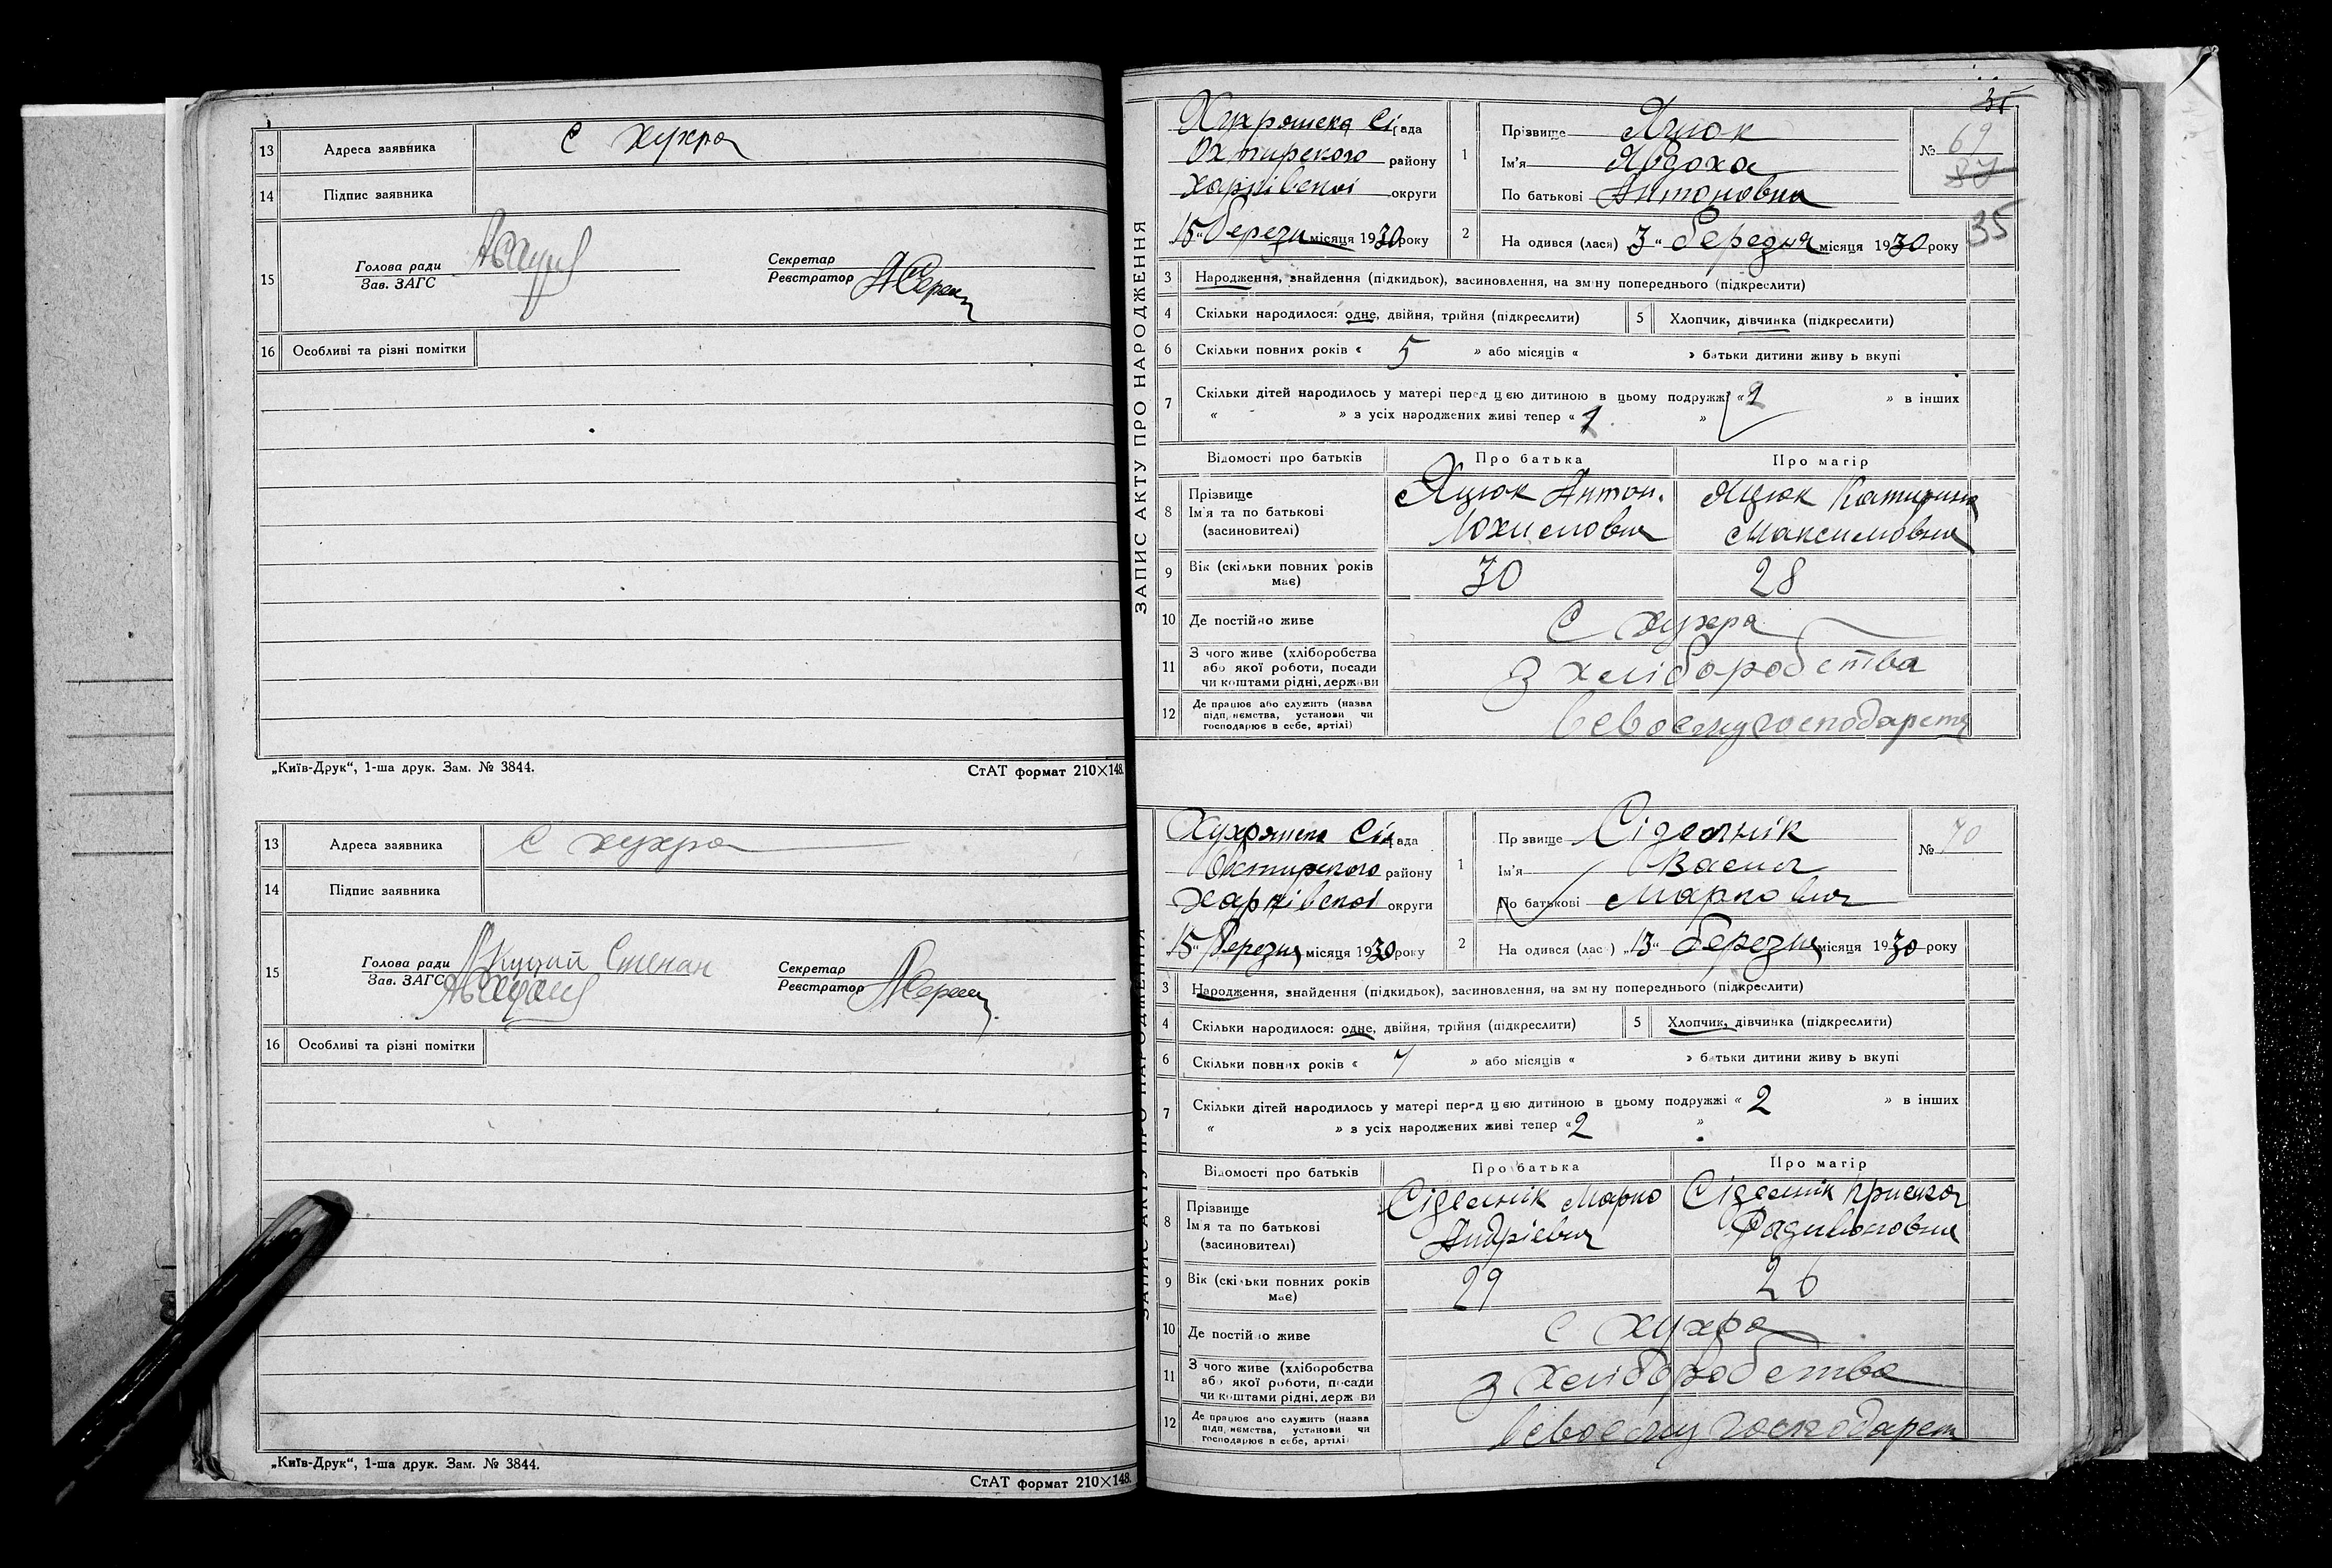 13 Адреса заявника С хухра
14 Підпис заявника
15 Голова ради
Зав. ЗАГС
Секретар
Реєстратор
16 Особливі та різні помітки
„Київ-Друк“, 1-ша друк. Зам. № 3844. СтАТ формат 210×148.
13 Адреса заявника С хухра
14 Підпис заявника
15 Голова ради Куций Степан
Зав. ЗАГС
Секретар
Реєстратор
16 Особливі та різні помітки
„Київ-Друк“, 1-ша друк. Зам. № 3844.
СтАТ формат 210×148.
ЗАПИС АКТУ ПРО НАРОДЖЕННЯ
35
Сіл рада
Охтирского району
Харківскої округи
15 „ березня місяця 1930 року
1 Прізвище Яцюк
Ім'я Явдоха
По батькові Антоновна
№ 69
87
35
2 На одився (лася) 3 „ березня місяця 1930 року
3 Народження, знайдення (підкидьок), засиновлення, на зміну попереднього (підкреслити)
4 Скільки народилося: одне, двійня, трійня (підкреслити) 5 Хлопчик, дівчинка (підкреслити)
6 Скільки повних років « 5 » або місяців « » батьки дитини живу ь вкупі
7 Скільки дітей народилось у матері перед цією дитиною в цьому подружжі « 1 » в інших
« » з усіх народжених живі тепер « 1 »
Відомості про батьків Про батька Про матір
8 Прізвище
Ім'я та по батькові
(засиновителі)
Яцюк Антон
Юхимович
Яцюк Катирина
Максимовна
9 Вік (скільки повних років має) 30 28
10 Де постійно живе С хухра
11 З чого живе (хліборобства
або якої роботи, посади
чи коштами рідні, держави
З хліборобства
12 Де працює або служить (назва
підприємства, установи чи
господарює в себе, артілі)
всвоєму господарств
ЗАПИС АКТУ ПРО НАРОДЖЕННЯ
Сіл рада
району
Харківскої округи
15 „ березня місяця 1930 року
1 Пр звище Сідельнік
Ім'я Васил
По батькові Маркович
№ 70
2 На одився (лас ) 13 „ березня місяця 1930 року
3 Народження, знайдення (підкидьок), засиновлення, на зміну попереднього (підкреслити)
4 Скільки народилося: одне, двійня, трійня (підкреслити) 5 Хлопчик, дівчинка (підкреслити)
6 Скільки повних років « 7 » або місяців « » батьки дитини живу ь вкупі
7 Скільки дітей народилось у матері перед цією дитиною в цьому подружжі « 2 » в інших
« » з усіх народжених живі тепер « 2 »
Відомості про батьків Про батька Про матір
8 Прізвище
Ім'я та по батькові
(засиновителі)
Сідельнік Марко
Андрієвич
Сідельнік Приська
9 Вік (скільки повних років має) 29 26
10 Де постійно живе С хухра
11 З чого живе (хліборобства
або якої роботи, посади
чи коштами рідні, держави
З хліборобства
12 Де працює або служить (назва
підприємства, установи чи
господарює в себе, артілі)
всвоєму господарст